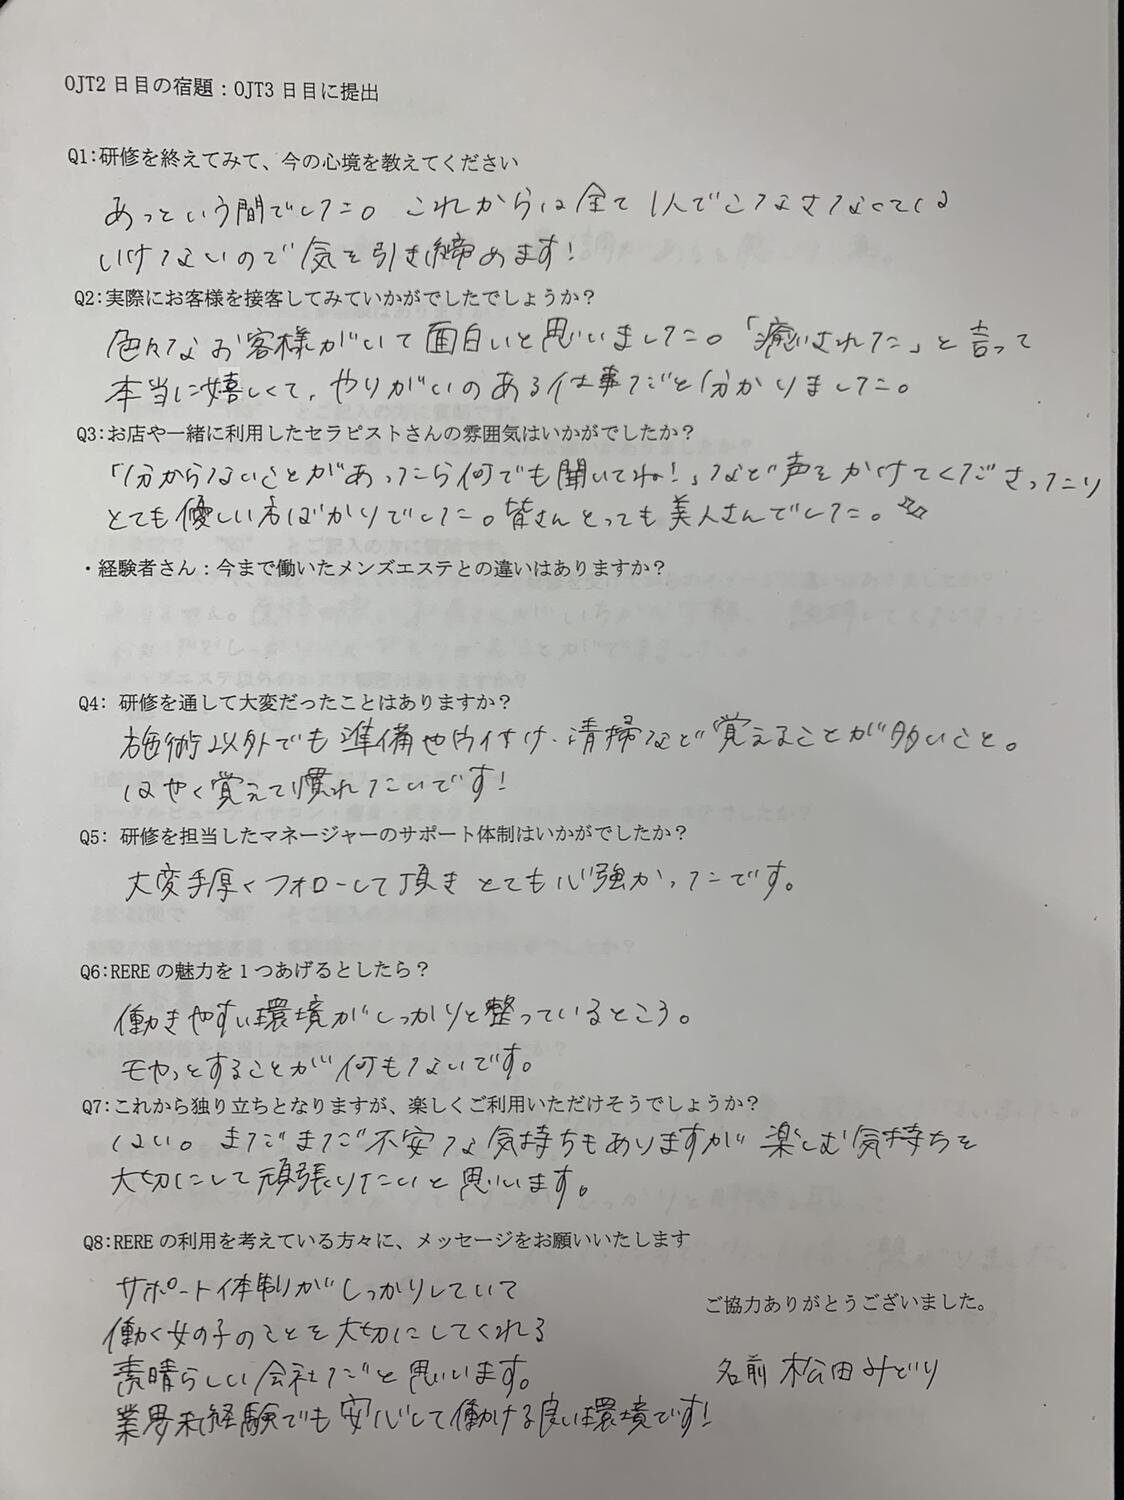 OJT2日目の宿題：OJT3日目に提出
Q1:研修を終えてみて、今の心境を教えてください
あっという間でした。これからは全て1人でこなさなくては
いけないので気を引き締めます!
Q2:実際にお客様を接客してみていかがでしたでしょうか？
色々なお客様がいて面白いと思いました。「癒された」と言って
本当に嬉しくて、やりがいのある仕事だと分かりました。
Q3:お店や一緒に利用したセラピストさんの雰囲気はいかがでしたか？
「分からないことがあったら何でも聞いてね!」など声をかけてくださったり
とても優しい方ばかりでした。皆さんとっても美人さんでした。
・経験者さん：今まで働いたメンズエステとの違いはありますか？
Q4: 研修を通して大変だったことはありますか？
施術以外でも準備や片付け・清掃など覚えることが多いこと。
はやく覚えて慣れたいです!
Q5: 研修を担当したマネージャーのサポート体制はいかがでしたか？
大変手厚くフォローして頂きとても心強かったです。
Q6:REREの魅力を1つあげるとしたら？
働きやすい環境がしっかりと整っているところ。
モヤっとすることが何もないです。
Q7:これから独り立ちとなりますが、楽しくご利用いただけそうでしょうか？
はい。まだまだ不安な気持ちもありますが楽しむ気持ちを
大切にして頑張りたいと思います。
Q8:REREの利用を考えている方々に、メッセージをお願いいたします
サポート体制がしっかりしていて
働く女の子のことを大切にしてくれる
素晴らしい会社だと思います。
業界未経験でも安心して働ける良い環境です!
ご協力ありがとうございました。
名前 松田みどり